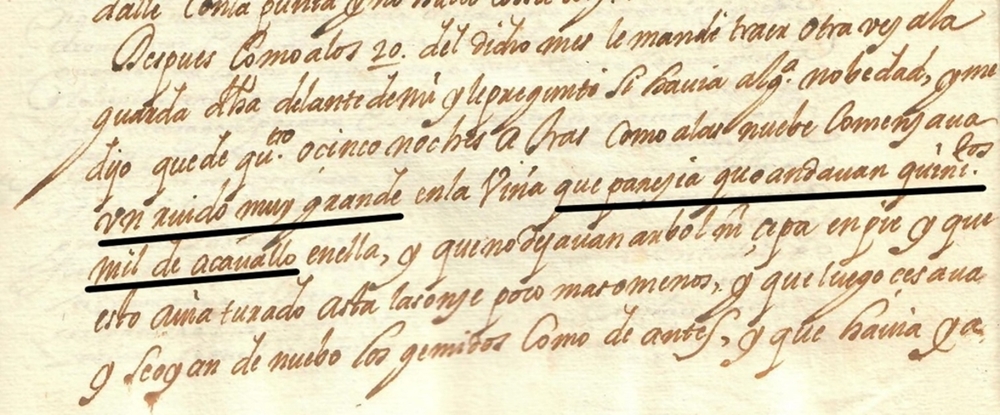 dalle Conla punta y no hallo cossa
Despues Como alos 20. del dicho mes le mande traer otra vez ala
guarda dha delante de mi y le pregunte si havia algª. nobedad, y me
dijo que de qu.tro o cinco noches a tras como alas nuebe Comensava
vn ruido muy grande en la Viña que paresia que andavan quini.tos
mil de acavallo en ella, y que no dejavan arbol ni çepa en pie y que
esto avia turado asta las onse poco mas o menos, y que luego cesava
y se oyan de nuebo los gemidos Como de antes, y que havia ya